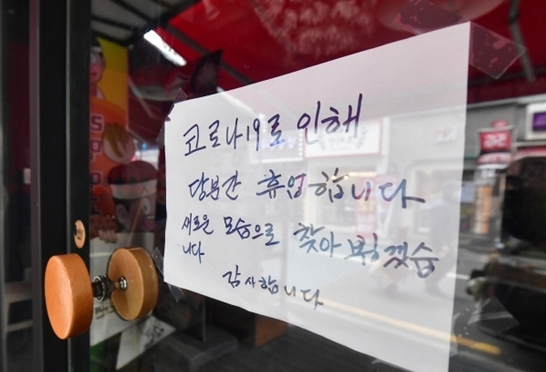 코로나19로 인해
당분간 휴업합니다
새로운 모습으로 찾아 뵙겠습
니다
감사합니다